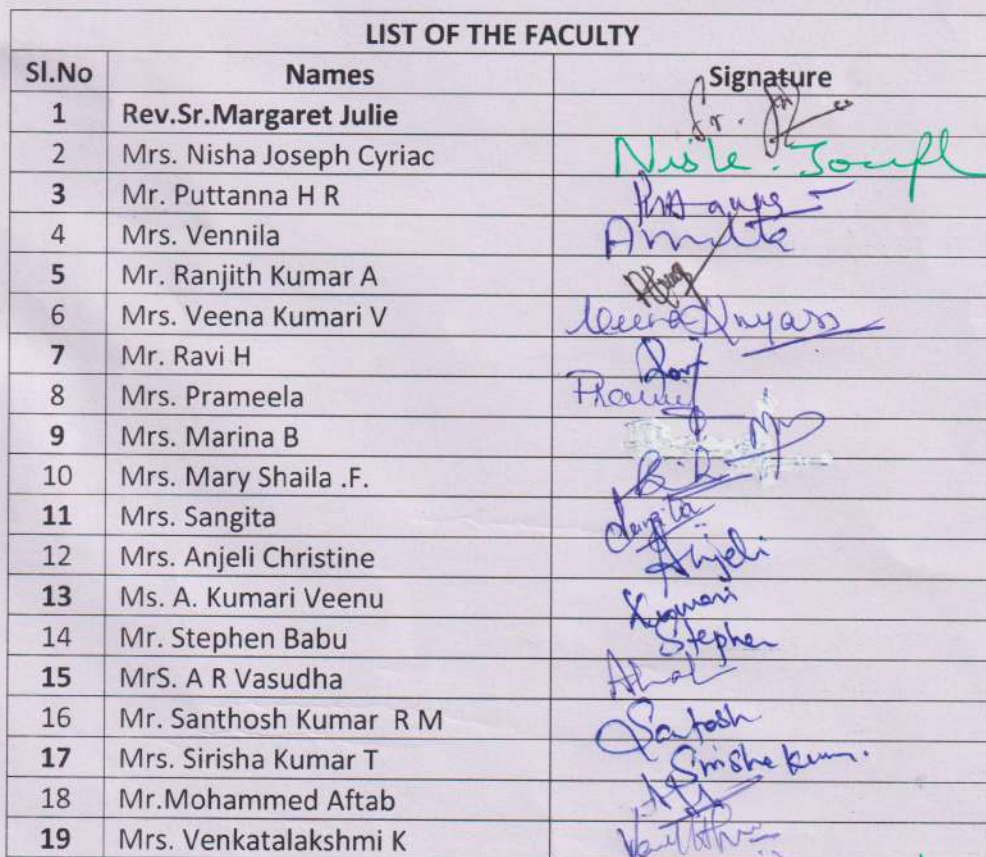 LIST OF THE FACULTY
Sl.No Names Signature
1 Rev.Sr.Margaret Julie Sr.
2 Mrs. Nisha Joseph Cyriac
3 Mr. Puttanna H R
4 Mrs. Vennila
5 Mr. Ranjith Kumar A
6 Mrs. Veena Kumari V
7 Mr. Ravi H
8 Mrs. Prameela
9 Mrs. Marina B
10 Mrs. Mary Shaila .F.
11 Mrs. Sangita Sangita
12 Mrs. Anjeli Christine Anjeli
13 Ms. A. Kumari Veenu Kumari
14 Mr. Stephen Babu Stephen
15 MrS. A R Vasudha
16 Mr. Santhosh Kumar R M Santosh
17 Mrs. Sirisha Kumar T
18 Mr.Mohammed Aftab
19 Mrs. Venkatalakshmi K